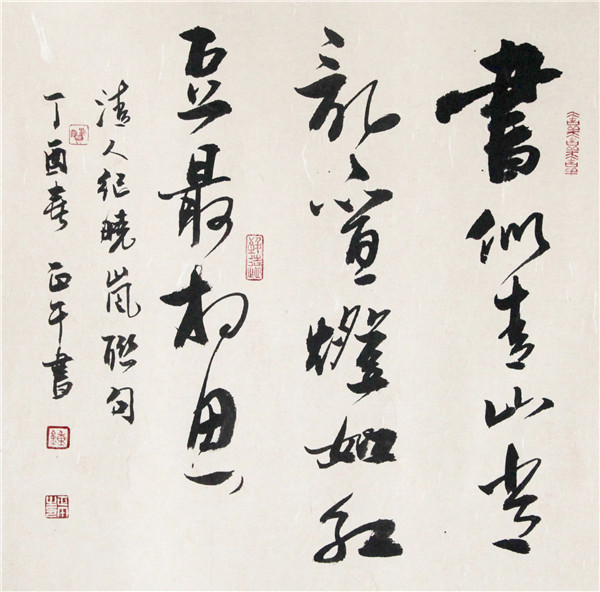 書似青山常
亂疊燈如紅
豆最相思
清人紀曉嵐聯句
丁酉春 正午書